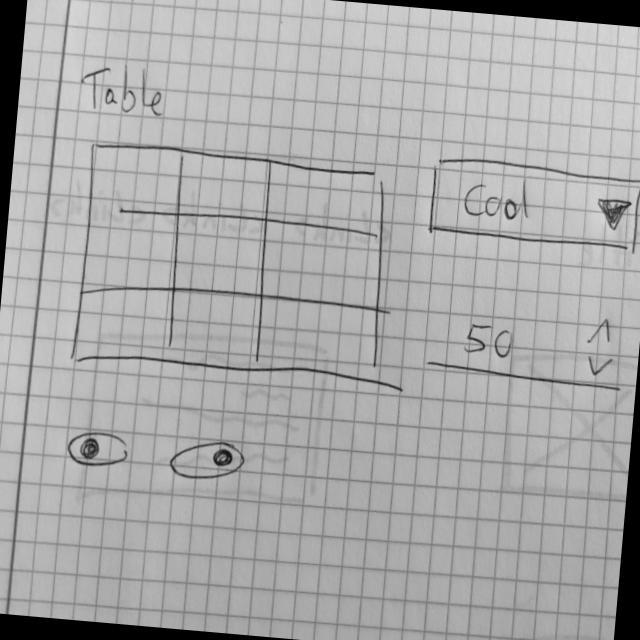 Table
Cool
50